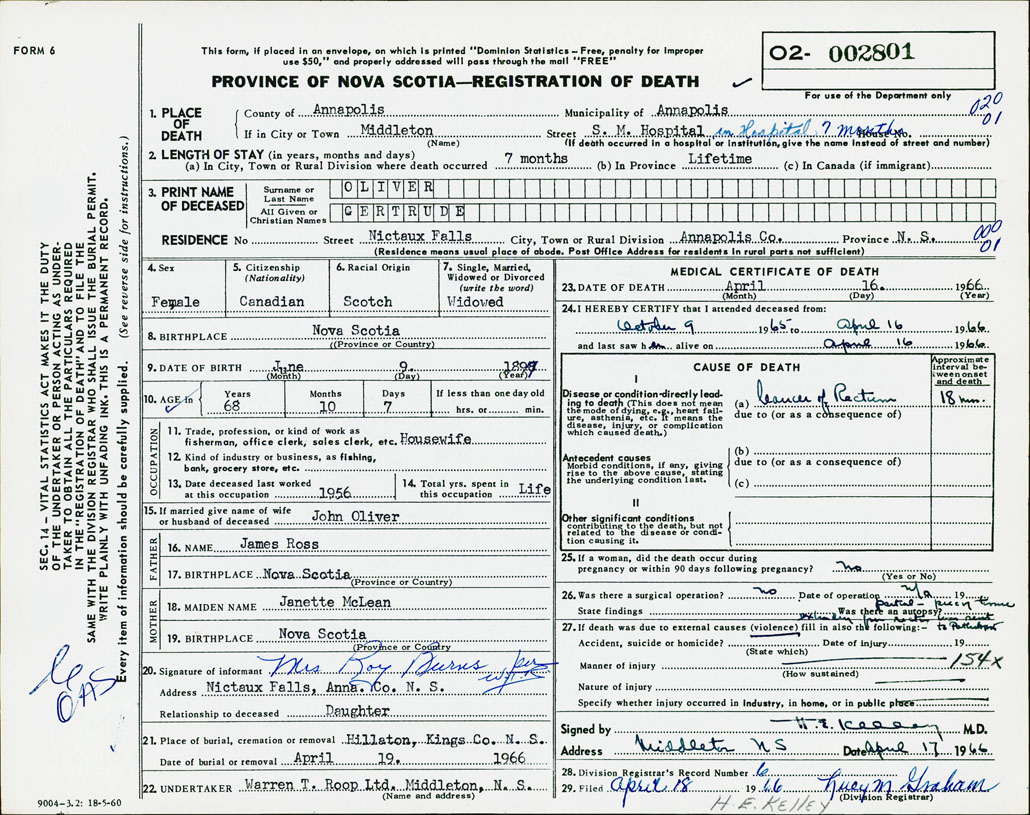 FORM 6
This form, if placed in an envelope, on which is printed "Dominion Statistics – Free, penalty for improper
use $50," and properly addressed will pass through the mail "FREE"
O2- 002801
PROVINCE OF NOVA SCOTIA—REGISTRATION OF DEATH
For use of the Department only
020
01
SEC. 14 — VITAL STATISTICS ACT MAKES IT THE DUTY
OF THE UNDERTAKER OR PERSON ACTING AS UNDER-
TAKER TO OBTAIN ALL THE PARTICULARS REQUIRED
IN THE "REGISTRATION OF DEATH" AND TO FILE THE
SAME WITH THE DIVISION REGISTRAR WHO SHALL ISSUE THE BURIAL PERMIT.
WRITE PLAINLY WITH UNFADING INK. THIS IS A PERMANENT RECORD.
Every item of information should be carefully supplied. (See reverse side for instructions.)
1. PLACE OF DEATH
County of Annapolis Municipality of Annapolis
If in City or Town Middleton Street S. M. Hospital in Hospital 7 months House No.
(Name) (If death occurred in a hospital or institution, give the name instead of street and number)
2. LENGTH OF STAY (in years, months and days)
(a) In City, Town or Rural Division where death occurred 7 months (b) In Province Lifetime (c) In Canada (if immigrant)
3. PRINT NAME OF DECEASED
Surname or Last Name OLIVER
All Given or Christian Names GERTRUDE
RESIDENCE No Street Nictaux Falls City, Town or Rural Division Annapolis Co. Province N. S.
000
01
(Residence means usual place of abode. Post Office Address for residents in rural parts not sufficient)
4. Sex
Female
5. Citizenship
(Nationality)
Canadian
6. Racial Origin
Scotch
7. Single, Married,
Widowed or Divorced
(write the word)
Widowed
8. BIRTHPLACE Nova Scotia
(Province or Country)
9. DATE OF BIRTH June 9. 1897
(Month) (Day) (Year)
10. AGE in Years Months Days If less than one day old
68 10 7 hrs. or min.
OCCUPATION
11. Trade, profession, or kind of work as
fisherman, office clerk, sales clerk, etc. Housewife
12. Kind of industry or business, as fishing,
bank, grocery store, etc.
13. Date deceased last worked
at this occupation 1956
14. Total yrs. spent in
this occupation Life
15. If married give name of wife
or husband of deceased John Oliver
FATHER
16. NAME James Ross
17. BIRTHPLACE Nova Scotia
(Province or Country)
MOTHER
18. MAIDEN NAME Janette McLean
19. BIRTHPLACE Nova Scotia
(Province or Country)
20. Signature of informant Mrs Roy Burns per
Address Nictaux Falls, Anna. Co. N. S.
Relationship to deceased Daughter
21. Place of burial, cremation or removal Hillaton, Kings Co. N. S.
Date of burial or removal April 19. 1966
22. UNDERTAKER Warren T. Roop Ltd. Middleton, N. S.
(Name and address)
9004-3.2: 18-5-60
MEDICAL CERTIFICATE OF DEATH
23. DATE OF DEATH April 16. 1966
(Month) (Day) (Year)
24. I HEREBY CERTIFY that I attended deceased from:
October 9 1965 to April 16 1966
and last saw her alive on April 16 1966.
CAUSE OF DEATH
Approximate
interval be-
tween onset
and death
I
Disease or condition directly lead-
ing to death (This does not mean
the mode of dying, e.g., heart fail-
ure, asthenia, etc. It means the
disease, injury, or complication
which caused death.)
(a) Cancer of Rectum 18 mos.
due to (or as a consequence of)
Antecedent causes
Morbid conditions, if any, giving
rise to the above cause, stating
the underlying condition last.
(b)
due to (or as a consequence of)
(c)
II
Other significant conditions
contributing to the death, but not
related to the disease or condi-
tion causing it.
25. If a woman, did the death occur during
pregnancy or within 90 days following pregnancy? no
(Yes or No)
26. Was there a surgical operation? no Date of operation n/a 19
State findings Was there an autopsy? partial
27. If death was due to external causes (violence) fill in also the following:-
Accident, suicide or homicide? Date of injury 19
(State which)
Manner of injury 154X
(How sustained)
Nature of injury
Specify whether injury occurred in industry, in home, or in public place
Signed by H. E. Kelley M.D.
Address Middleton NS Date April 17 1966
28. Division Registrar's Record Number 6
29. Filed April 18 1966 Lucy M Graham
(Division Registrar)
H. E. KELLEY